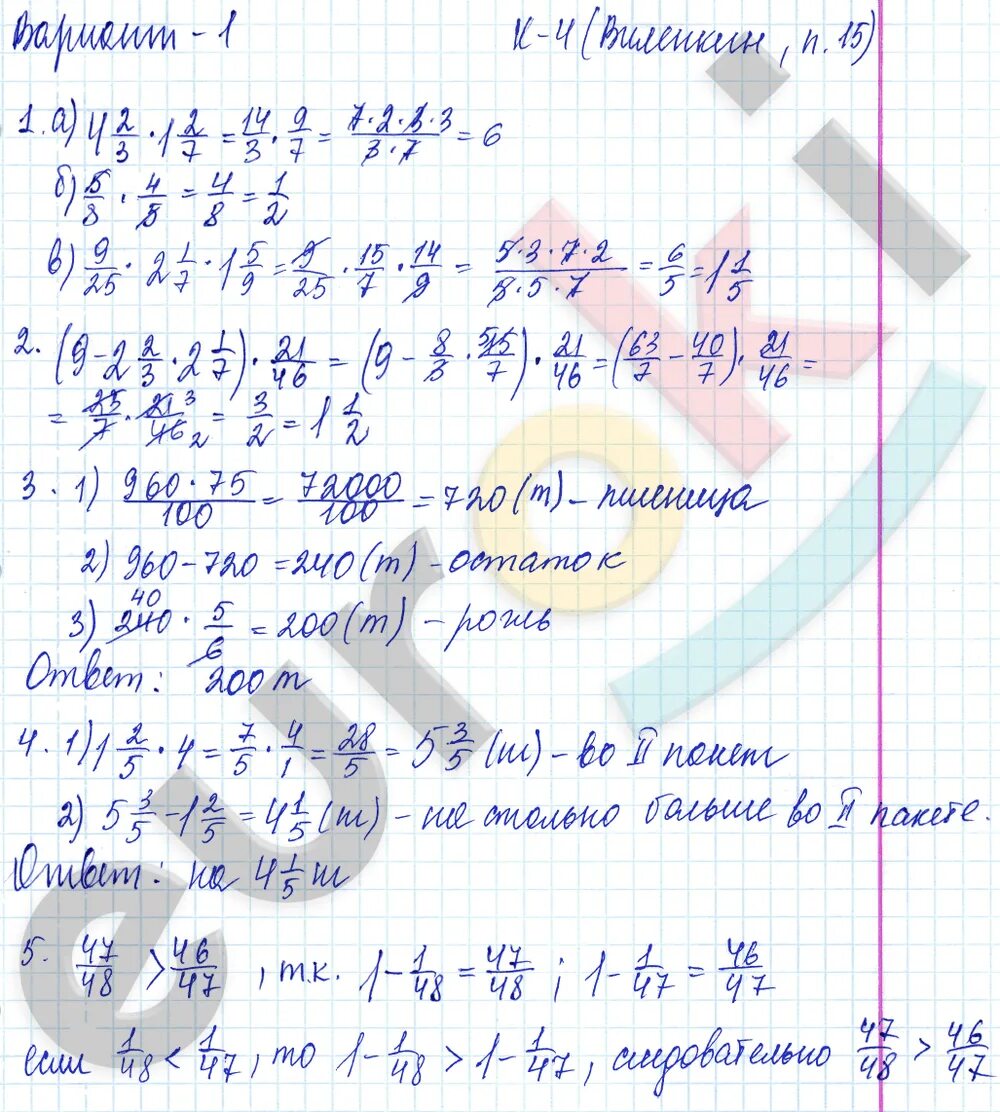 Вариант - 1 К-4 (Виленкин, п. 15)
1. а) 4 2/3 · 1 2/7 = 14/3 · 9/7 = 7·2·3·3/3·7 = 6
б) 5/8 · 4/5 = 4/8 = 1/2
в) 9/25 · 2 1/7 · 1 5/9 = 9/25 · 15/7 · 14/9 = 5·3·7·2/5·5·7 = 6/5 = 1 1/5
2. (9 - 2 2/3 · 2 1/7) · 21/46 = (9 - 8/3 · 15/7) · 21/46 = (63/7 - 40/7) · 21/46 =
= 23/7 · 21/46 = 3/2 = 1 1/2
3. 1) 960·75/100 = 72000/100 = 720 (т) - пшеница
2) 960 - 720 = 240 (т) - остаток
3) 240 · 5/6 = 200 (т) - рожь
Ответ: 200 т
4. 1) 1 2/5 · 4 = 7/5 · 4/1 = 28/5 = 5 3/5 (т) - во II пакет
2) 5 3/5 - 1 2/5 = 4 1/5 (т) - на столько больше во II пакете.
Ответ: на 4 1/5 т
5. 47/48 > 46/47, т.к. 1 - 1/48 = 47/48; 1 - 1/47 = 46/47
если 1/48 < 1/47, то 1 - 1/48 > 1 - 1/47, следовательно 47/48 > 46/47
euroki